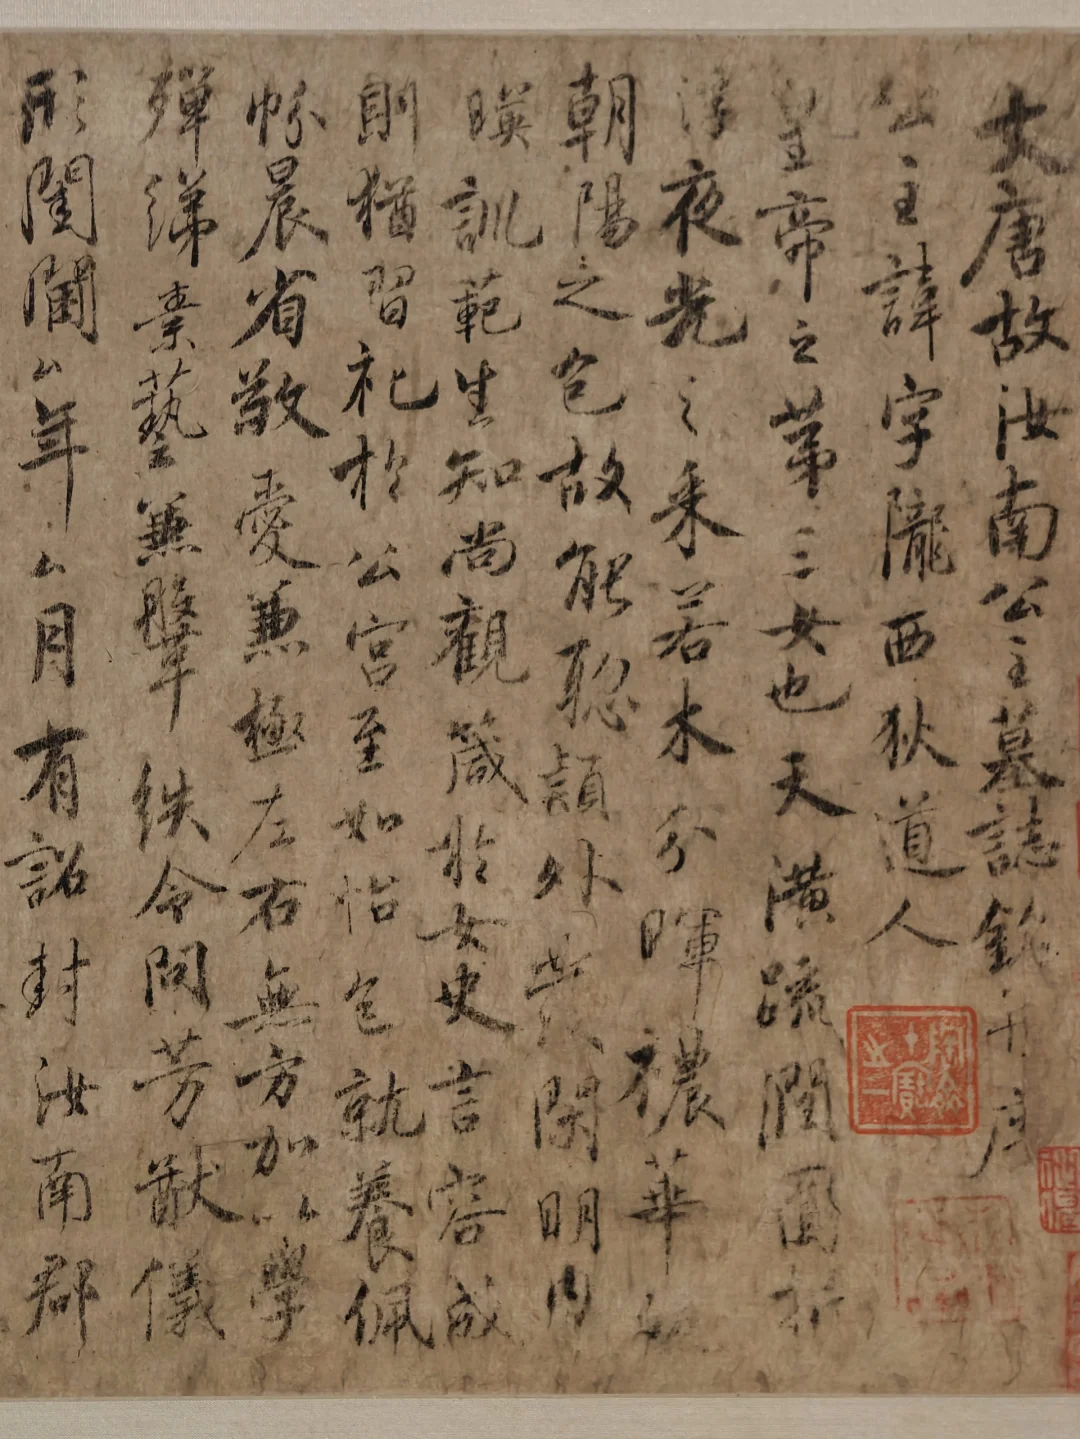 大唐故汝南公主墓誌銘并序
公主諱字隴西狄道人
皇帝之第三女也天潢疏潤圓折
浮夜光之采若木分暉穠華如
朝陽之色故能聰穎外發閑明内
暎訓範生知尚觀箴於女史言容成
則猶習礼於公宮至如怡色就養佩
帉晨省敬愛兼極左右無方加以學
殫綈素藝兼鞶紩令問芳猷儀
形閨閫厶年厶月有詔封汝南郡